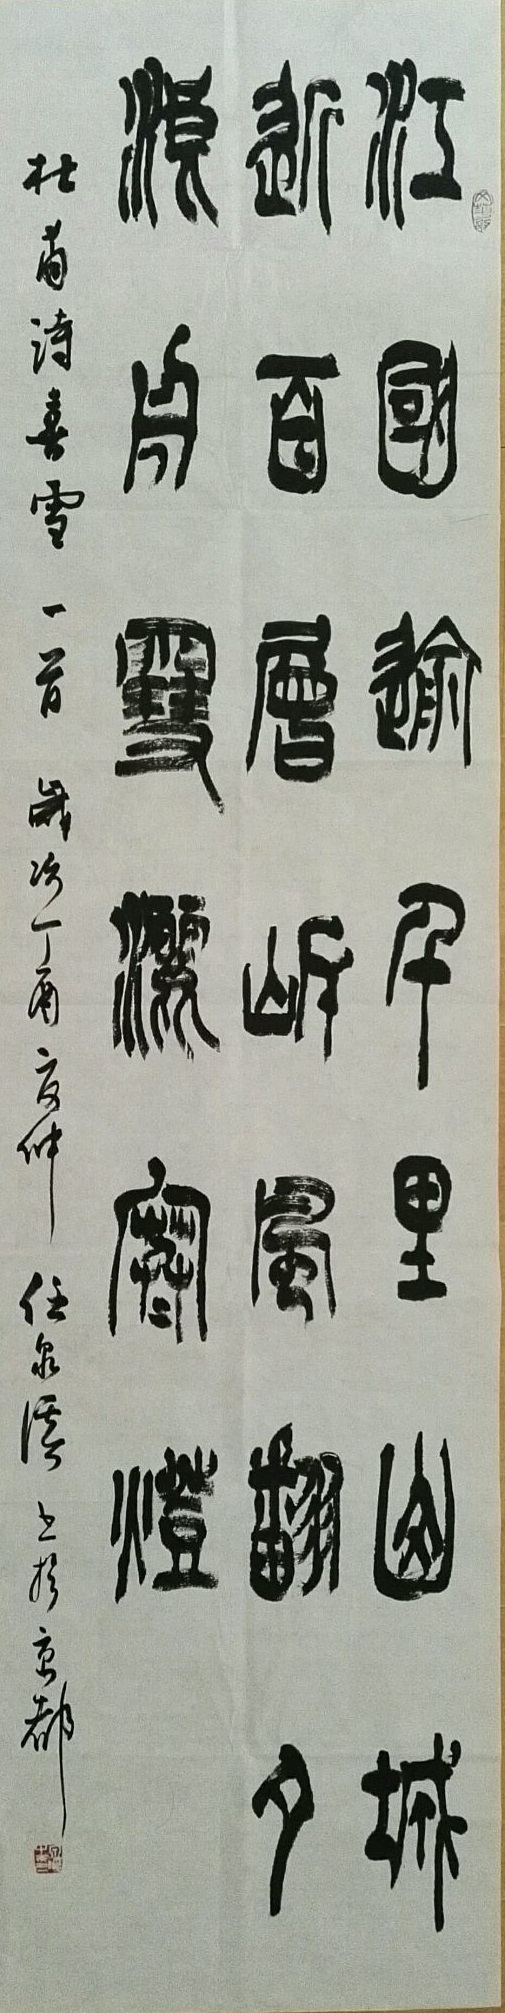 江國逾千里山城
近百層岸風翻夕
浪舟雪灑寒燈
杜甫詩喜雪一首 歲次丁酉夏仲 任泉 书於京都